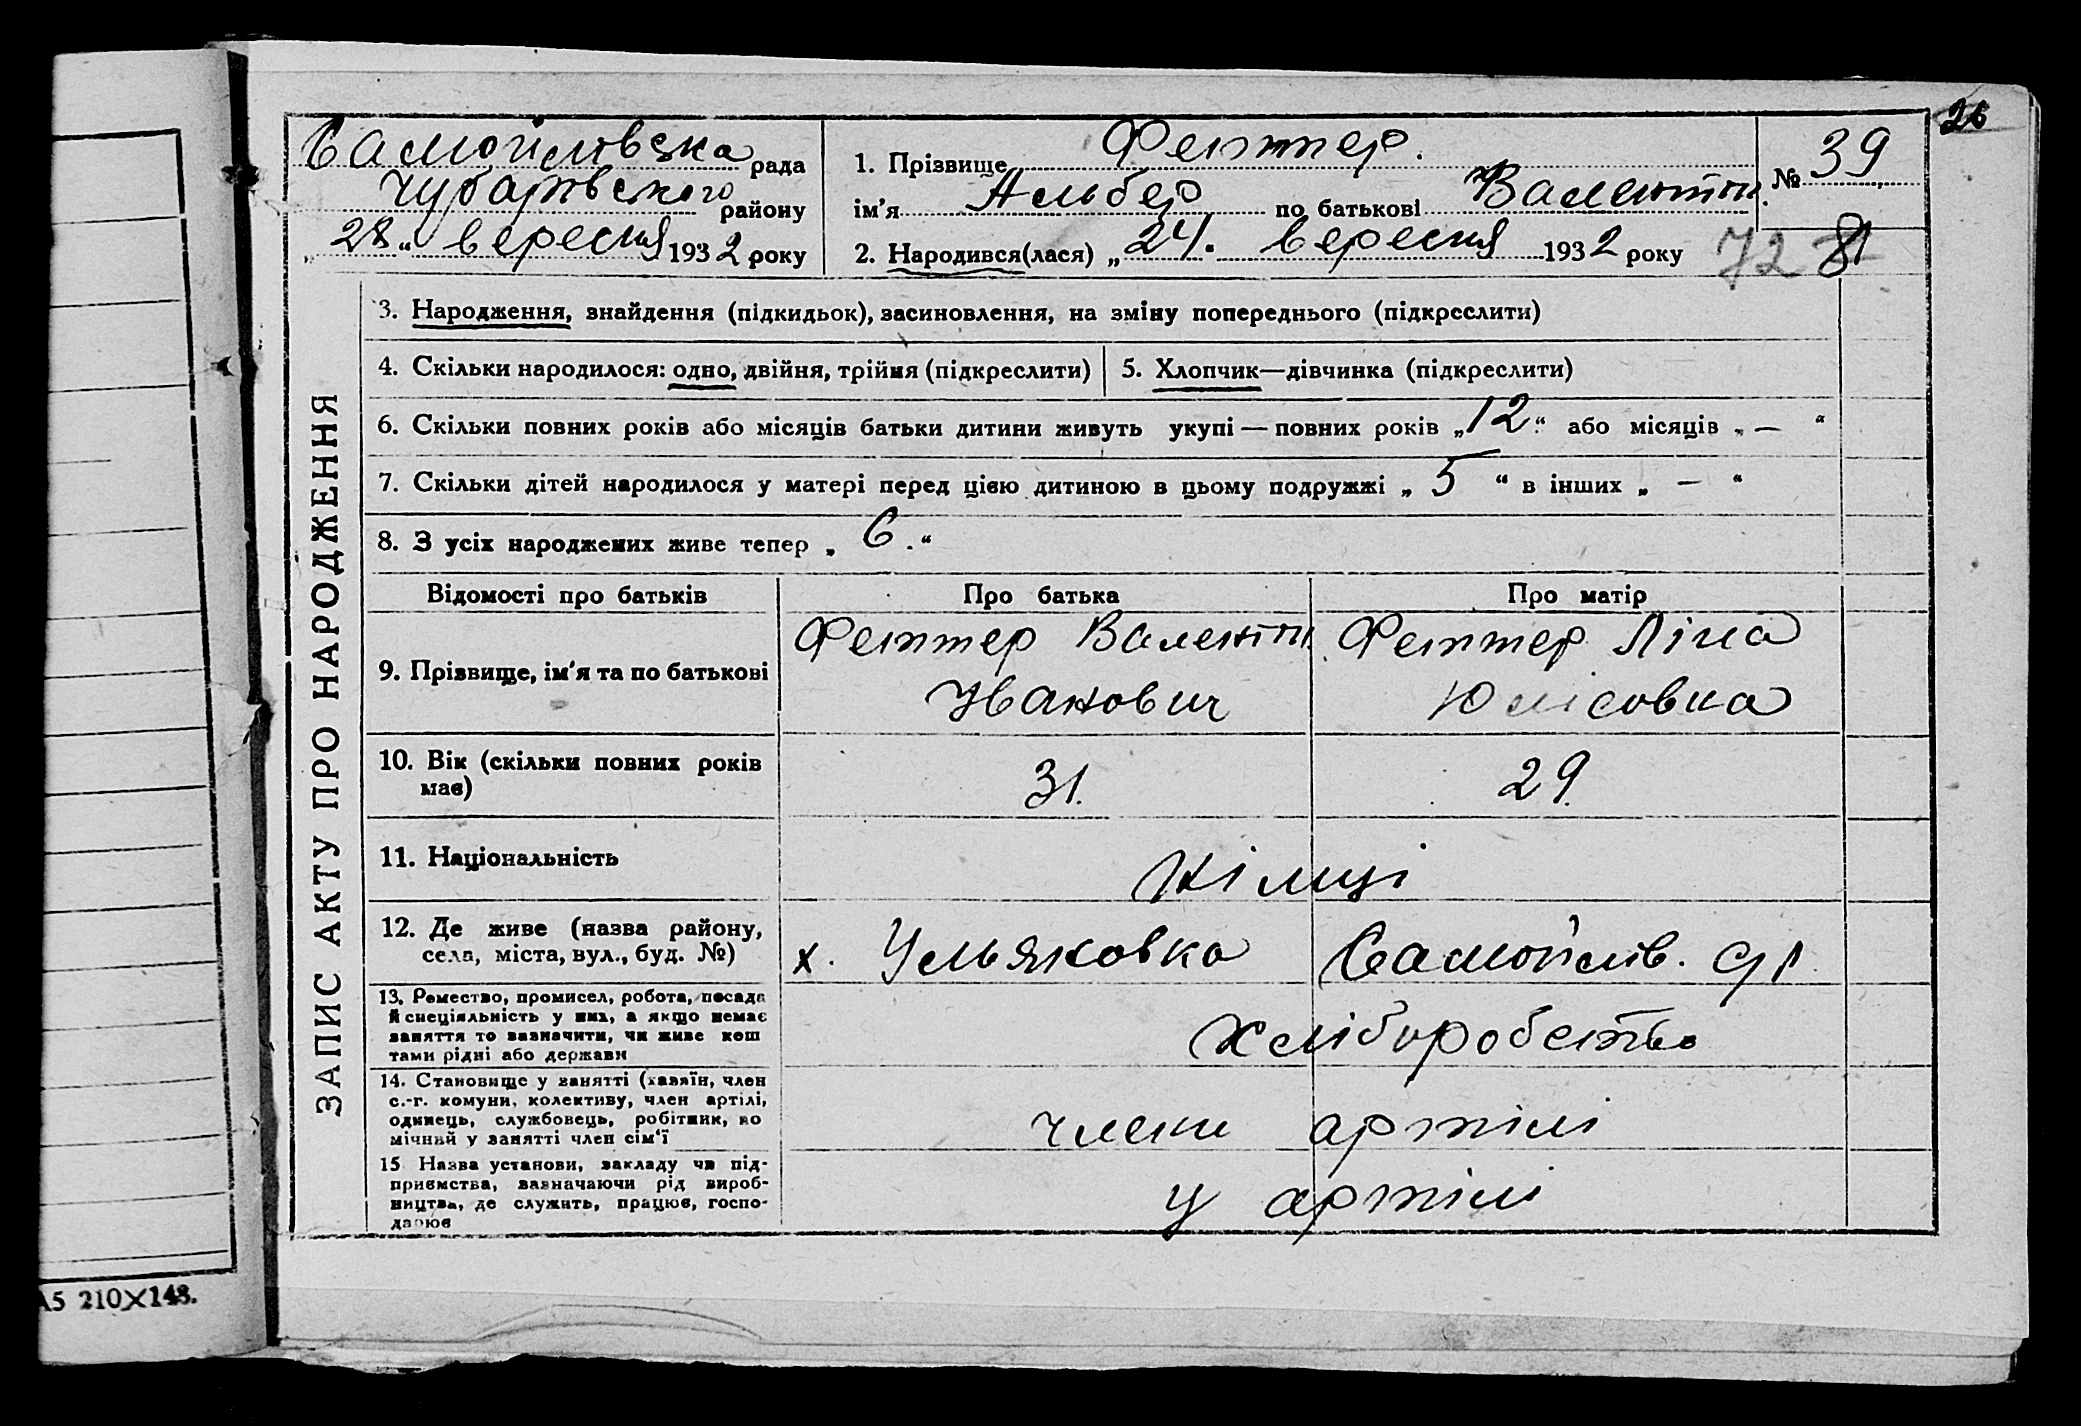 26
Самойловська рада
Чубарівського району
„28“ вересня 1932 року
1. Прізвище Фетттер.
ім'я Альбер по батькові Валентин.
2. Народився(лася) „24. вересня 1932 року
№ 39
72 81
ЗАПИС АКТУ ПРО НАРОДЖЕННЯ
3. Народження, знайдення (підкидьок), засиновлення, на зміну попереднього (підкреслити)
4. Скільки народилося: одно, двійня, трійня (підкреслити)
5. Хлопчик—дівчинка (підкреслити)
6. Скільки повних років або місяців батьки дитини живуть укупі — повних років „12“ або місяців „ — “
7. Скільки дітей народилося у матері перед цією дитиною в цьому подружжі „ 5 “ в інших „ — “
8. З усіх народжених живе тепер „ 6. “
Відомості про батьків
Про батька
Про матір
9. Прізвище, ім'я та по батькові
Фетттер Валентин
Иванович
Фетттер Ліна
10. Вік (скільки повних років
має)
31.
29.
11. Національність
Німці
12. Де живе (назва району,
села, міста, вул., буд. №)
х. Ульяновка Самойлів. с/р
13. Ремество, промисел, робота, посада
й спеціяльність у них, а якщо немає
заняття то зазначити, чи живе кош
тами рідні або держави
Хліборобство
14. Становище у занятті (хазяїн, член
с.-г. комуни, колективу, член артілі,
одинець, службовець, робітник, по
мічний у занятті член сім'ї
члени артілі
15 Назва установи, закладу чи під-
приємства, зазначаючи рід вироб-
ництва, де служить, працює, госпо-
дарює
у артілі
А5 210×148.